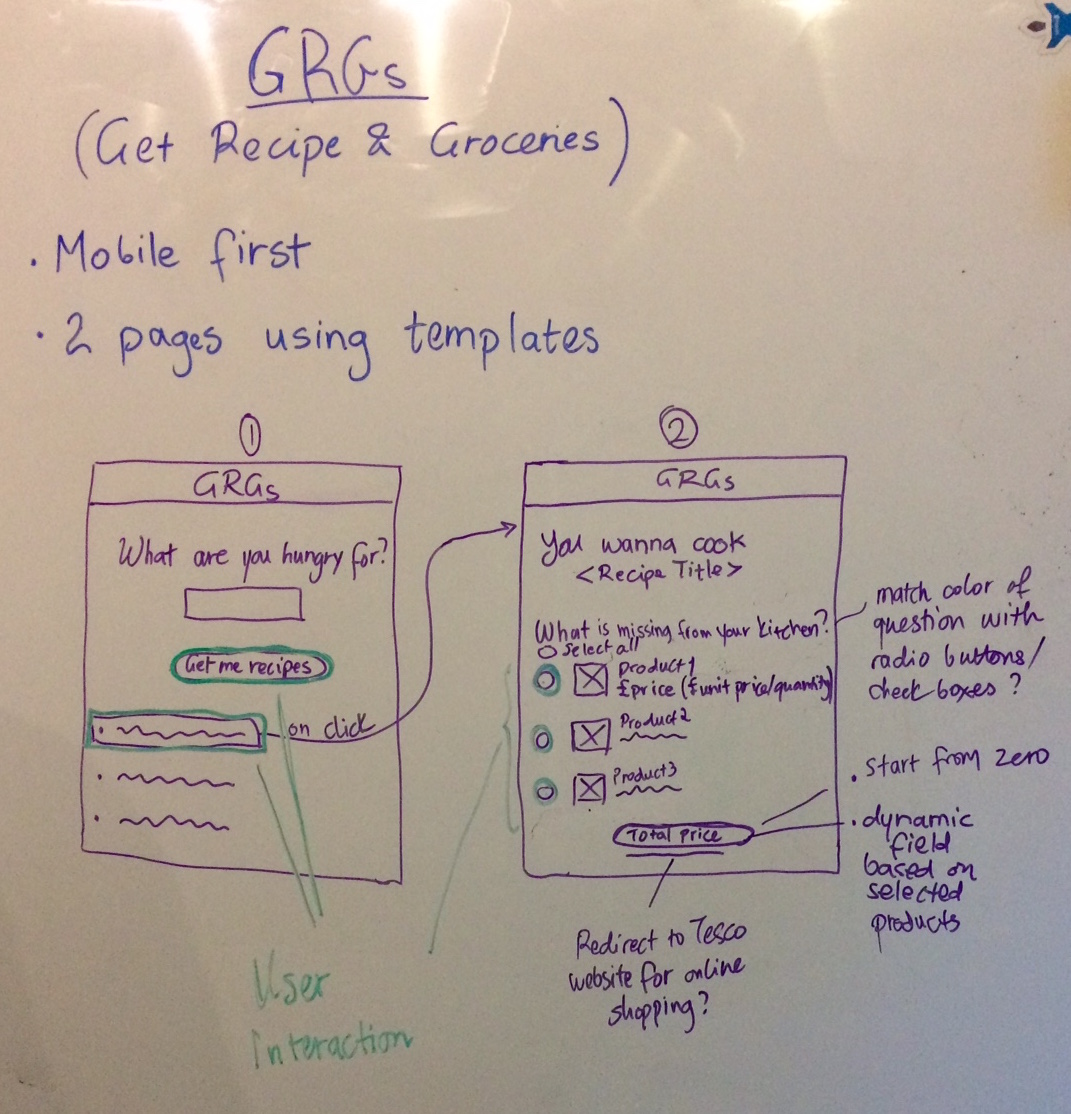 GRGs
(Get Recipe & Groceries)
. Mobile first
. 2 pages using templates
1
GRGs
What are you hungry for?
Get me recipes
on click
2
GRGs
You wanna cook
<Recipe Title>
What is missing from your kitchen?
Select all
Product1
£price (£unit price/quantity)
Product2
Product3
Total Price
match color of
question with
radio buttons/
check boxes ?
. start from zero
. dynamic
field
based on
selected
products
Redirect to Tesco
website for online
shopping?
User
interaction